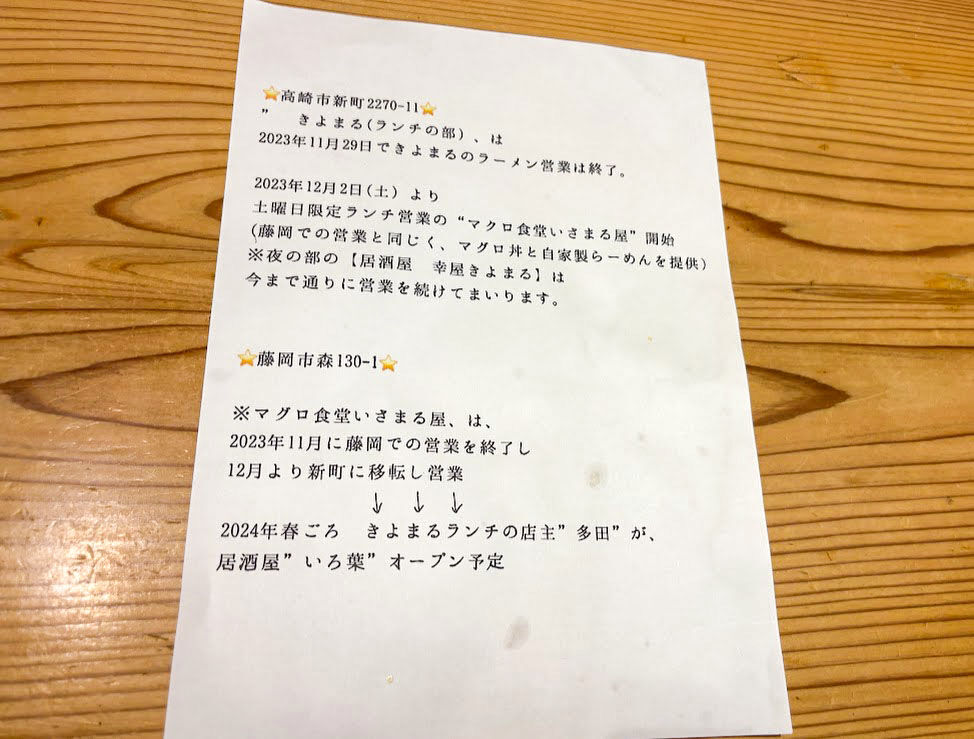 ⭐高崎市新町2270-11⭐
” きよまる(ランチの部)、は
2023年11月29日できよまるのラーメン営業は終了。
2023年12月2日(土) より
土曜日限定ランチ営業の “マクロ食堂いさまる屋” 開始
(藤岡での営業と同じく、マグロ丼と自家製らーめんを提供)
※夜の部の【居酒屋 幸屋きよまる】は
今まで通りに営業を続けてまいります。
⭐藤岡市森130-1⭐
※マグロ食堂いさまる屋、は、
2023年11月に藤岡での営業を終了し
12月より新町に移転し営業
↓ ↓ ↓
2024年春ごろ きよまるランチの店主”多田”が、
居酒屋”いろ葉”オープン予定